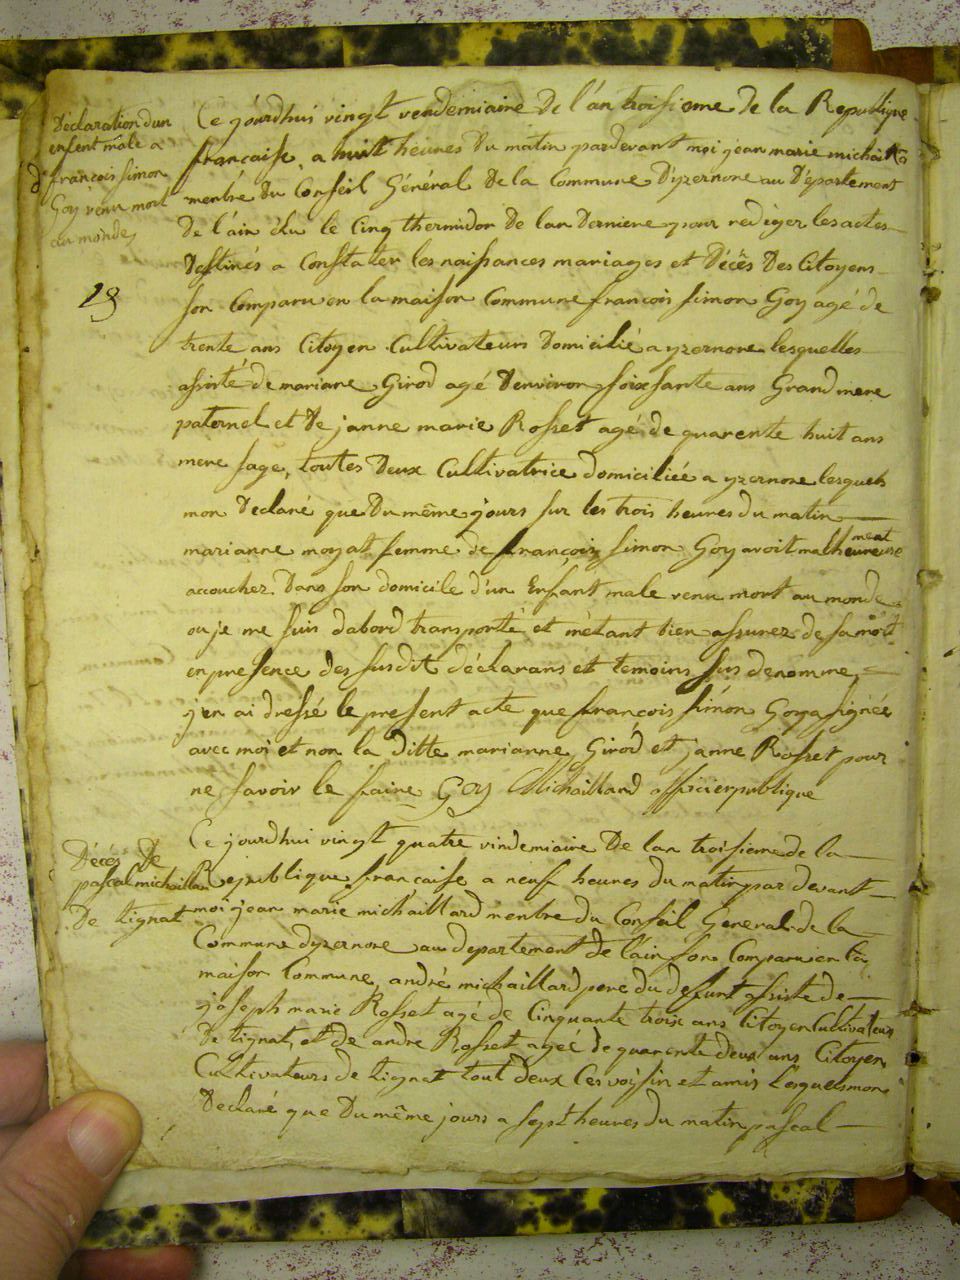 Déclaration d'un
enfent mâle a
françois simon
Goy venu mort
au monde
18
Ce jourdhui vingt vendemiaire De l'an troisieme de la Republique
francaise a huit heures Du matin pardevant moi jean marie michaillard
menbre Du Conseil Général De la Commune Dyzernore au Département
De l'ain élu le Cinq thermidor De lan Derniere pour rediger les actes
Destinés a Constater les naissances mariages et Décès Des Citoyens
son Comparu en la maison Commune francois simon Goy agé de
trente ans Citoyen Cultivateurs Domicilié a yzernore lesquelles
assisté de mariane Girod agé Denviron soixsante ans Grand mere
paternel et De janne marie Rosset agé de quarente huit ans
mere sage, toutes Deux Cultivatrice domiciliée a yzernore lesquels
mon Declaré que Du même jours sur les trois heures du matin
marianne moyat femme de françois simon Goy avoit malheureusement
accouchez Dans son domicile d'un Enfant male venu mort au monde
ou je me suis dabord transporté et métant bien assurez de sa mort
en presence des susdit déclarans et temoins sus denomme
j'en ai dressé le present acte que francois simon Goy a signée
avec moi et non la ditte marianne Girod et janne Rosset pour
ne savoir le faire Goy Michaillard officier publique
Décés De
pascal michaillard
De tignat
Ce jourdhui vingt quatre vindemiaire De lan troisieme de la
Republique francaise a neuf heures du matin par devant
moi jean marie michaillard menbre du Conseil General de la
Commune dyzernore au departement de lain son Comparu en la
maison Commune andré michaillard pere du defunt assiste de
joseph marie Rosset agé de Cinquante trois ans Citoyen Cultivateurs
De tignat, et de andre Rosset agéé de quarente deux ans Citoyen
Cultivateurs de tignat tout deux Ces voisin et amis Lesquels mon
Declaré que Du même jours a sept heures du matin pascal